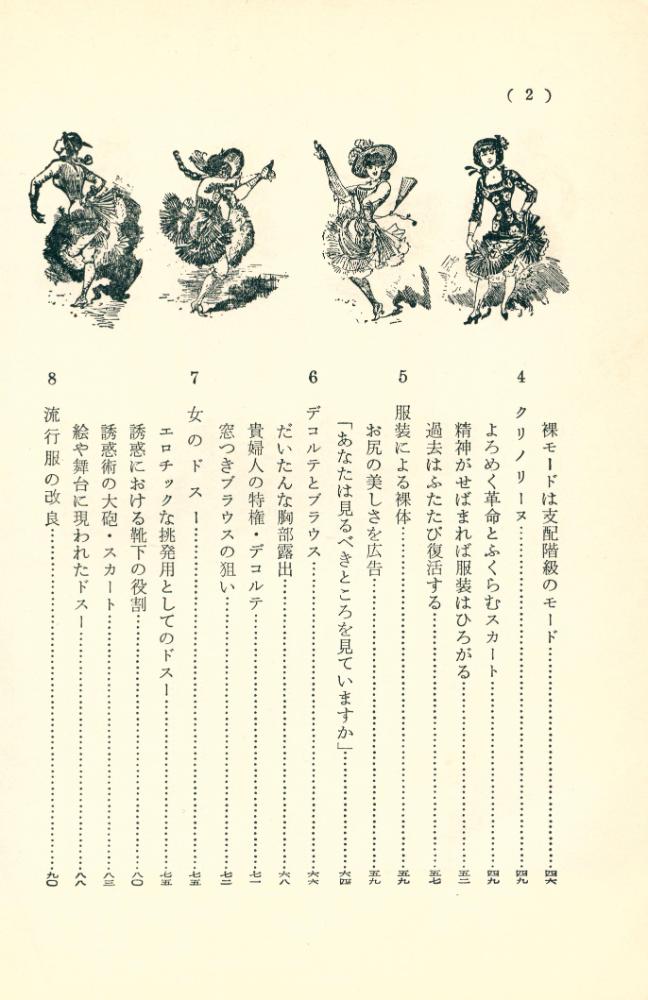 ( 2 )
裸モードは支配階級のモード……四六
4 クリノリーヌ……四九
よろめく革命とふくらむスカート……四九
精神がせばまれば服装はひろがる……五二
過去はふたたび復活する……五七
5 服装による裸体……五九
お尻の美しさを広告……五九
「あなたは見るべきところを見ていますか」……六四
6 デコルテとブラウス……六六
だいたんな胸部露出……六八
貴婦人の特権・デコルテ……七一
窓つきブラウスの狙い……七二
7 女のドスー……七五
エロチックな挑発用としてのドスー……七五
誘惑における靴下の役割……八〇
誘惑術の大砲・スカート……八三
絵や舞台に現われたドスー……八八
8 流行服の改良……九〇